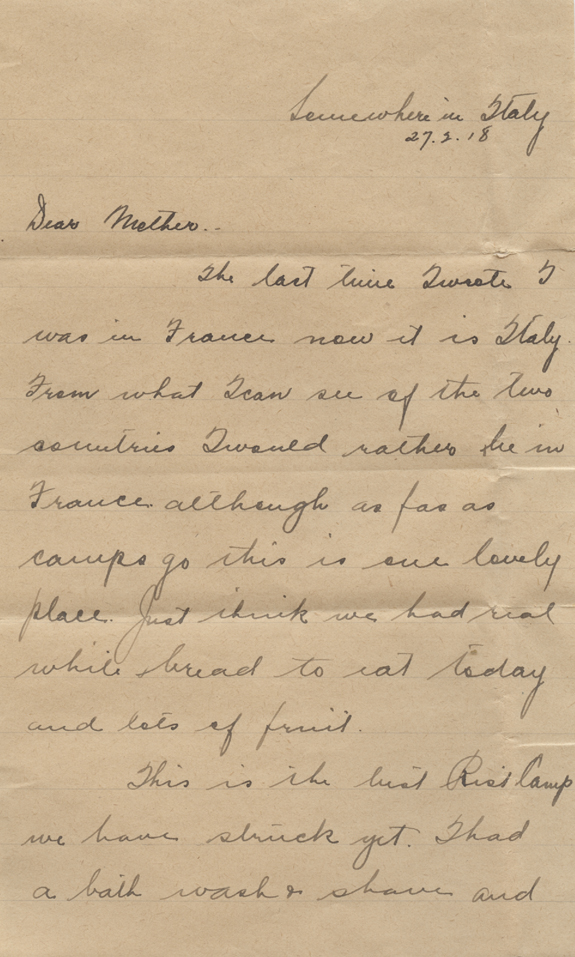 Somewhere in Italy
27.2.18
Dear Mother..
The last time I wrote I
was in France now it is Italy.
From what I can see of the two
countries I would rather be in
France although as far as
camps go this is one lovely
place. Just think we had real
white bread to eat today
and lots of fruit.
This is the best Rest Camp
we have struck yet. I had
a bath wash & shave and